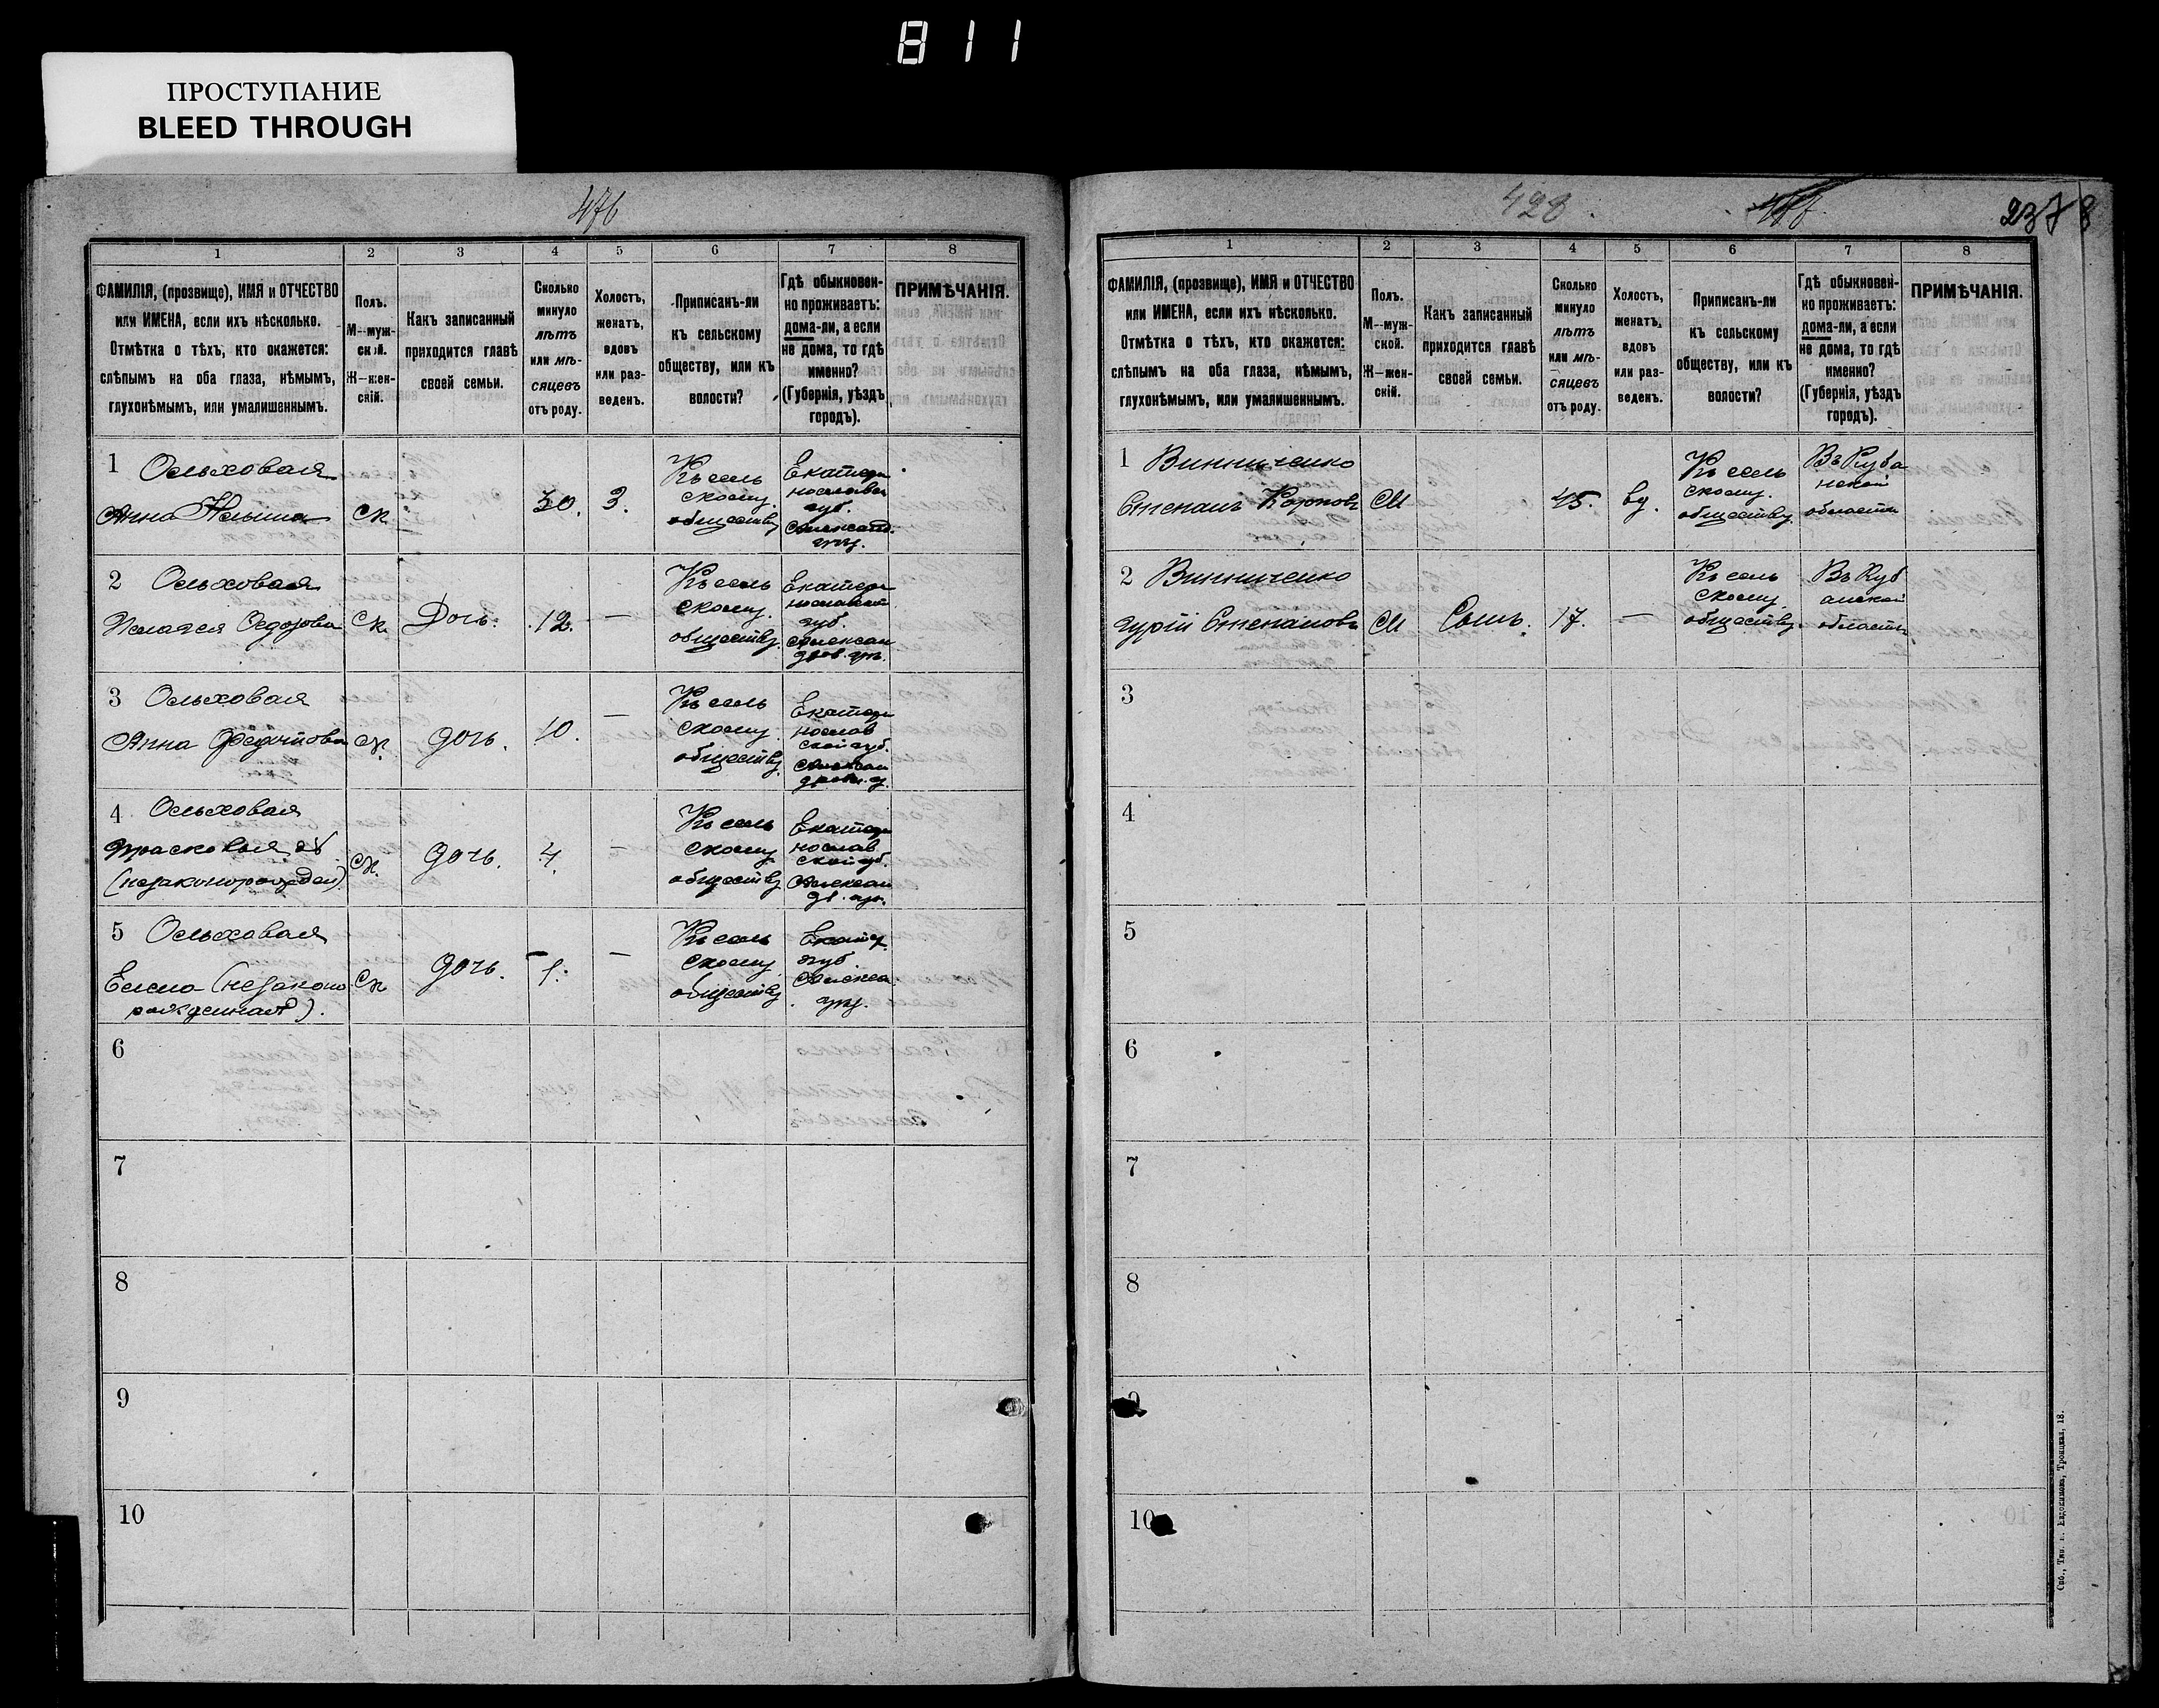 811
ПРОСТУПАНИЕ
BLEED THROUGH
476
1 2 3 4 5 6 7 8
ФАМИЛІЯ, (прозвище), ИМЯ и ОТЧЕСТВО
или ИМЕНА, если ихъ нѣсколько.
Отмѣтка о тѣхъ, кто окажется:
слѣпымъ на оба глаза, нѣмымъ,
глухонѣмымъ, или умалишеннымъ.
Полъ.
М--муж-
ской.
Ж--жен-
скій.
Какъ записанный
приходится главѣ
своей семьи.
Сколько
минуло
лѣтъ
или мѣ-
сяцевъ
отъ роду.
Холостъ,
женатъ,
вдовъ
или раз-
веденъ.
Приписанъ-ли
къ сельскому
обществу, или къ
волости?
Гдѣ обыкновен-
но проживаетъ:
дома-ли, а если
не дома, то гдѣ
именно?
(Губернія, уѣздъ
городъ).
ПРИМѢЧАНІЯ.
1 Ольховая
Анна
Ж
30.
З.
Къ сель
скому
обществу
Екатери
нославск
губ.
2 Ольховая
Пелагея Федорова
Ж
Дочь.
12.
—
Къ сель
скому
обществу
Екатери
нославской
губ.
Алексан
дров. у.
3 Ольховая
Анна
Ж
дочь.
10.
—
Къ сель
скому
обществу
Екатери
нослав
ской губ.
Алексан
4 Ольховая
(незаконорожден)
Ж.
дочь.
4.
—
Къ сель
скому
обществу
Екатери
нослав
ской губ.
Алексан
5 Ольховая
Елена (незаконо
рожденная).
Ж
дочь.
1.
—
Къ сель
скому
обществу
Екатер.
губ.
6
7
8
9
10
428
2378
1 2 3 4 5 6 7 8
ФАМИЛІЯ, (прозвище), ИМЯ и ОТЧЕСТВО
или ИМЕНА, если ихъ нѣсколько.
Отмѣтка о тѣхъ, кто окажется:
слѣпымъ на оба глаза, нѣмымъ,
глухонѣмымъ, или умалишеннымъ.
Полъ.
М--муж-
ской.
Ж--жен-
скій.
Какъ записанный
приходится главѣ
своей семьи.
Сколько
минуло
лѣтъ
или мѣ-
сяцевъ
отъ роду.
Холостъ,
женатъ,
вдовъ
или раз-
веденъ.
Приписанъ-ли
къ сельскому
обществу, или къ
волости?
Гдѣ обыкновен-
но проживаетъ:
дома-ли, а если
не дома, то гдѣ
именно?
(Губернія, уѣздъ
городъ).
ПРИМѢЧАНІЯ.
1 Винниченко
Степанъ Карповъ
М
45.
вд.
Къ сель
скому
обществу
Въ Куба
нской
области
2 Винниченко
Гурій Степановъ
М
Сынъ.
17.
—
Къ сель
скому
обществу.
Въ Куб
анской
области
3
4
5
6
7
8
9
10
Спб., Тип. Н. Евдокимова, Троицкая, 18.